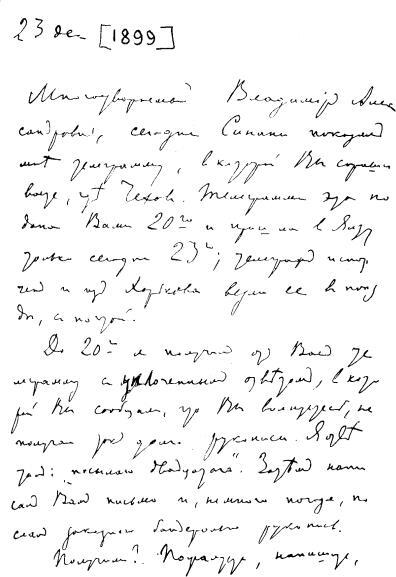 23 дек [1899]
Многоуважаемый Владимір Алек
сандровичъ, сегодня Синани показал
мнѣ телеграмму, в которой Вы спраши
ваете, гдѣ Чехов. Телеграмма эта по
дана Вами 20го и пришла в Ялту
только сегодня 23го; телеграф испор
чен и из Харькова везли ее в поез
де, с почтой.
До 20го я получил от Вас те
леграмму с уплоченным ответом, в кото
рой Вы сообщали, что Вы волнуетесь, не
получая так долго рукописи. Я отве
тил: „посылаю двадцатого". Затѣм напи
сал Вам письмо и, немного погодя, по
слал заказной бандеролью рукопись.
Получили? Пожалуйста, напишите,